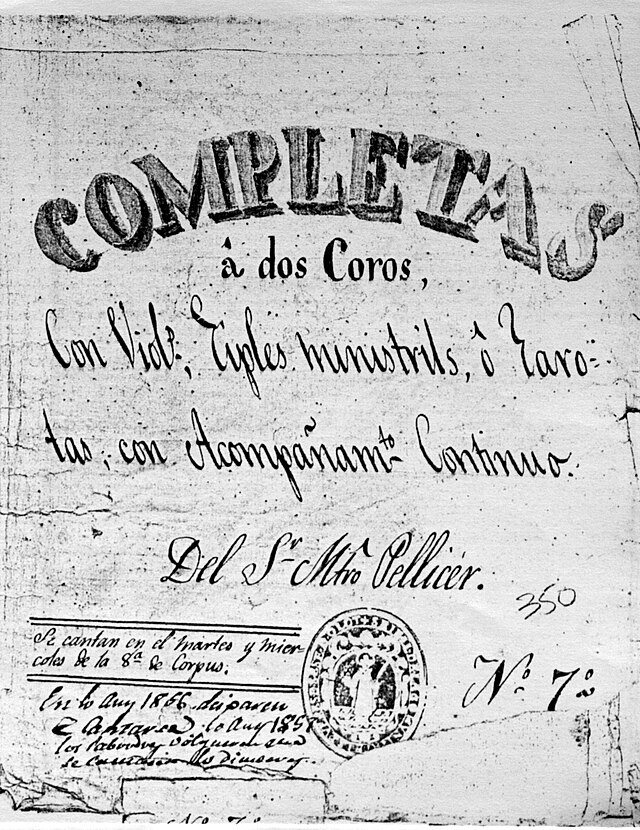 COMPLETAS
â dos Coros,
Con Viols., Tiples ministrils, ô Taro=
tas, con Acompañamto. Continuo.
Del Sr. Mtro. Pellicér.
350
Se cantan en el martes y mier-
coles de la 8ª de Corpus.
En lo any 1866
lo Any 1857
Nº 7º